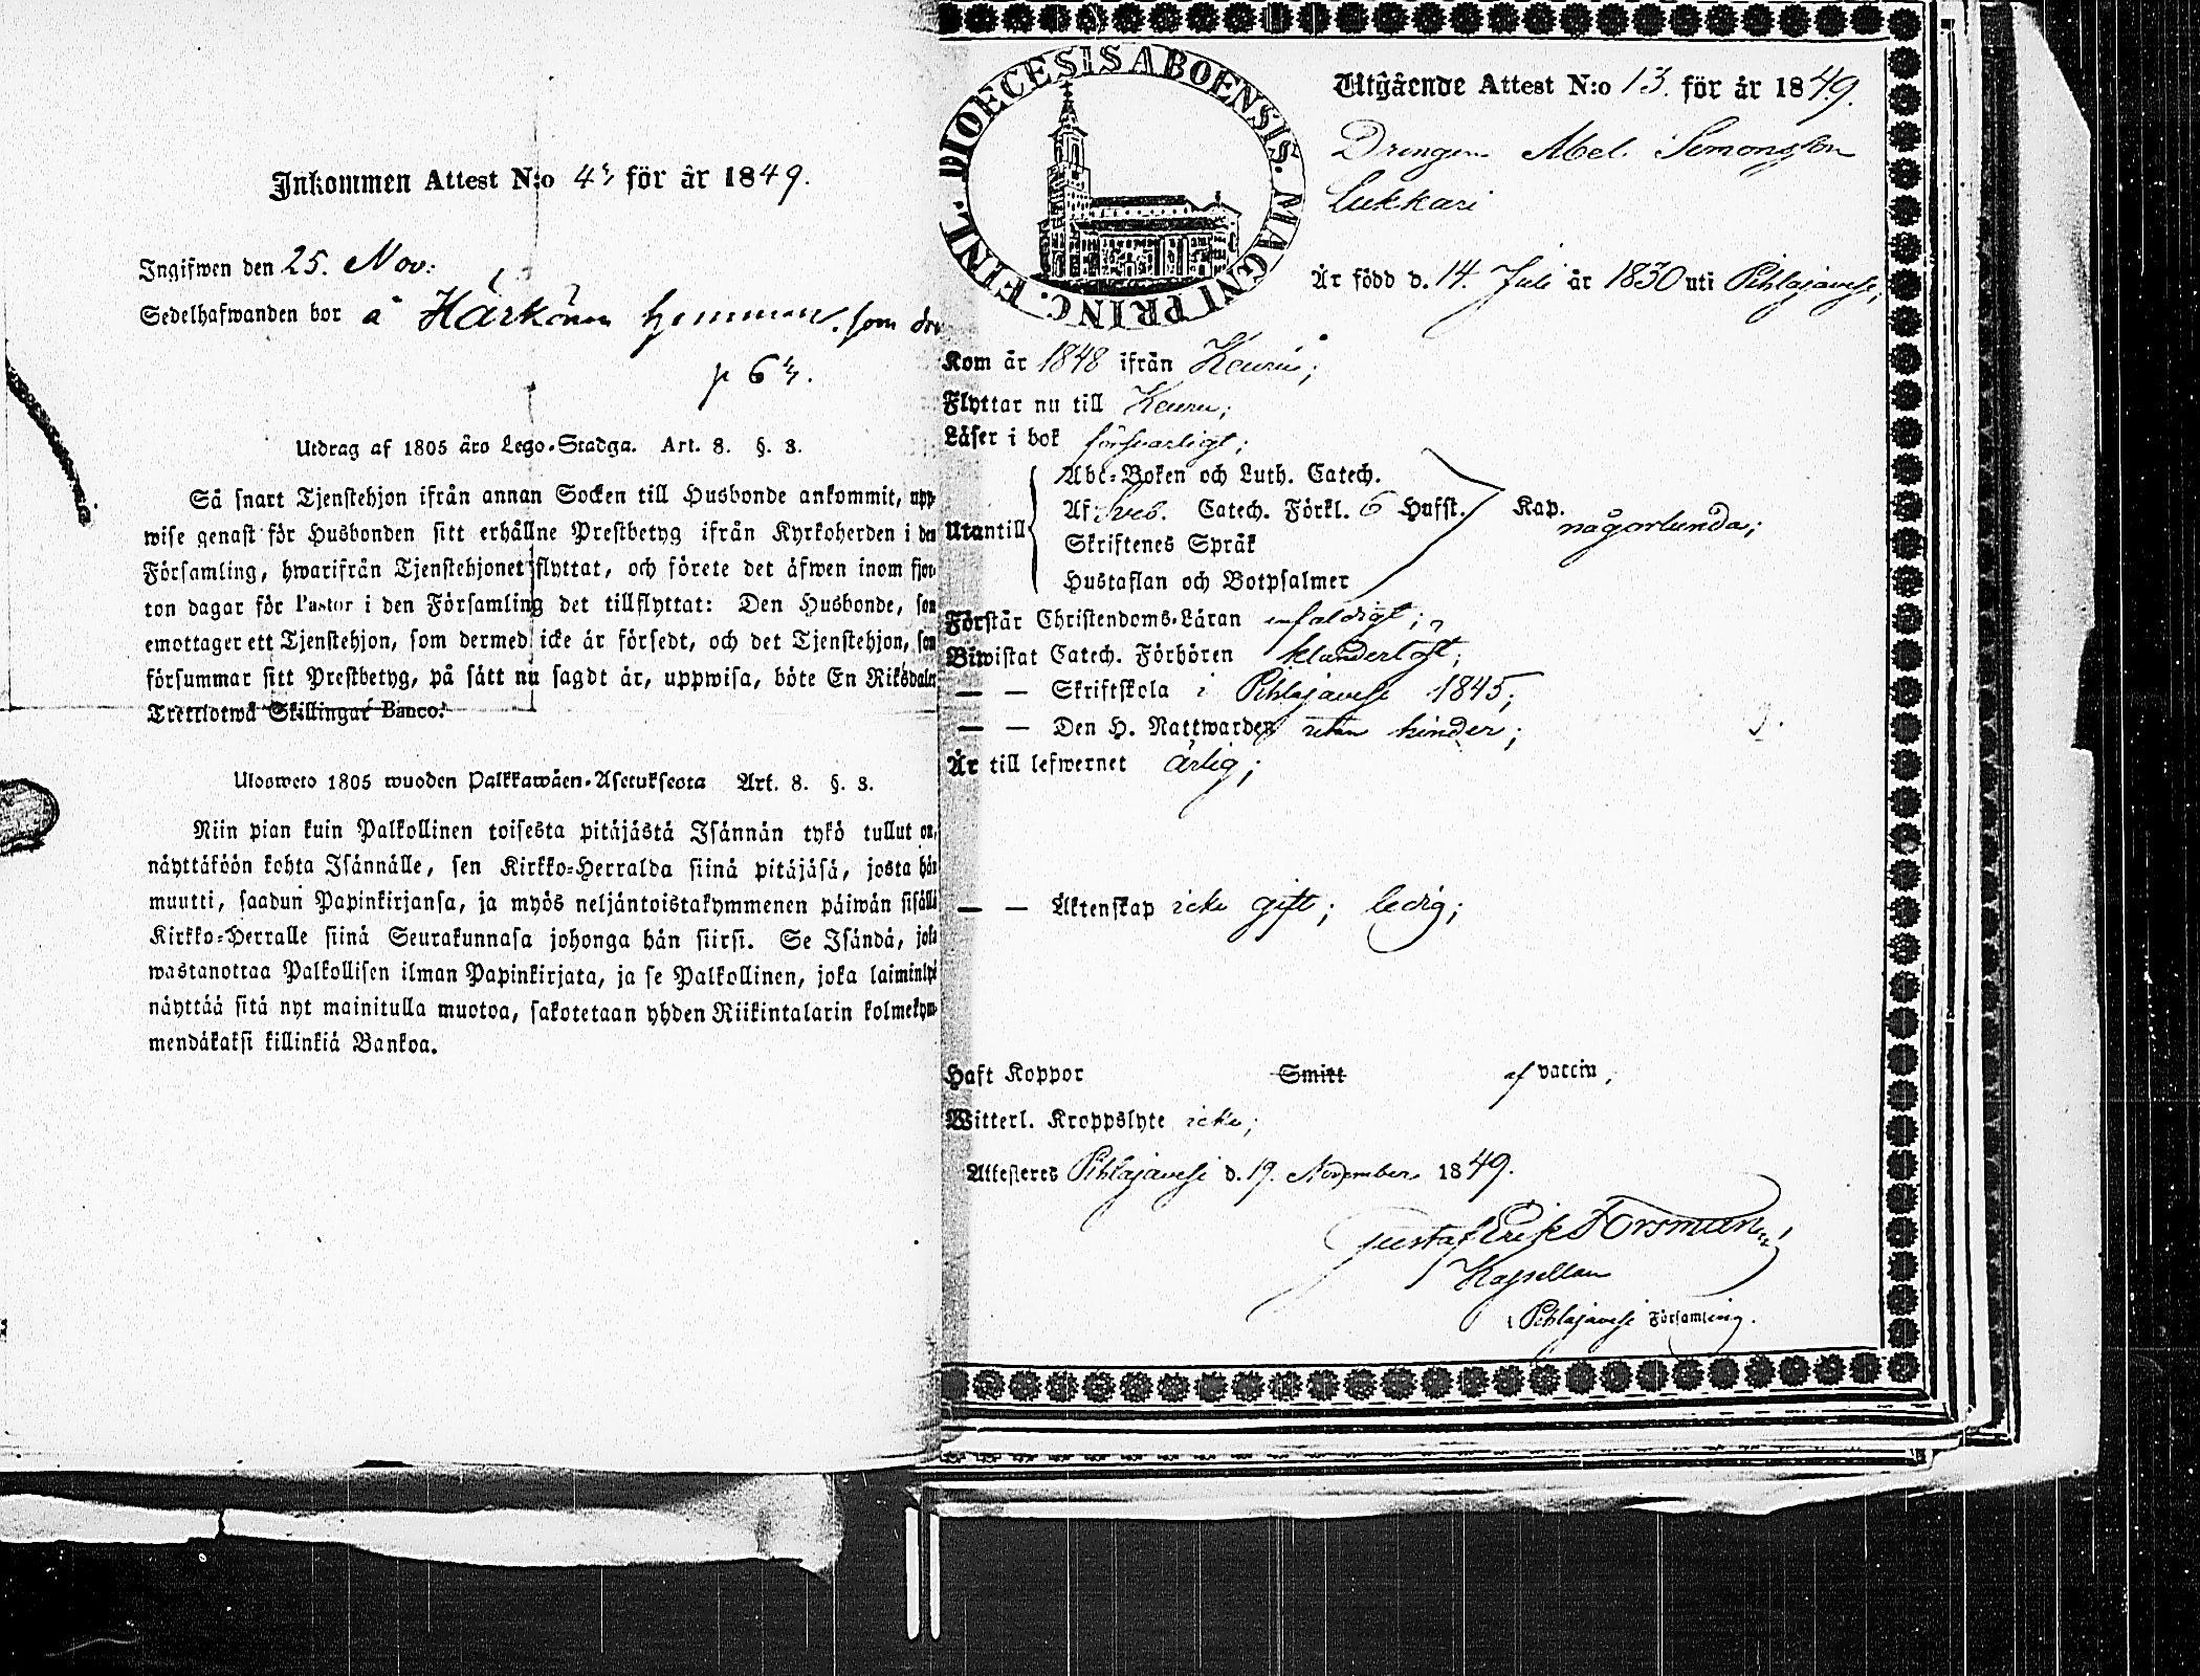 Inkommen Attest N:o för år 1849.
Ingifwen den 25. Nov:
Sedelhafwanden bor å Härkönen hemman, som
p 6
Utdrag af 1805 års Lego-Stadga. Art. 8. §. 3.
Så snart Tjenstehjon ifrån annan Socken till Husbonde ankommit, upp-
wise genast för Husbonden sitt erhållne Prestbetyg ifrån Kyrkoherden i den
Församling, hwarifrån Tjenstehjonet flyttat, och förete det äfwen inom fjor-
ton dagar för Pastor i den Församling det tillflyttat: Den Husbonde, som
emottager ett Tjenstehjon, som dermed icke är försedt, och det Tjenstehjon, som
försummar sitt Prestbetyg, på sätt nu sagdt är, uppwisa, böte En Riksdaler
Trettiotwå Skillingar Banco.
Ulosweto 1805 wuoden Palkkawäen-Asetuksesta Art. 8. §. 3.
Niin pian kuin Palkollinen toisesta pitäjästä Isännän tykö tullut on,
näyttäköön kohta Isännälle, sen Kirkko-Herralda siinä pitäjäsä, josta hän
muutti, saadun Papinkirjansa, ja myös neljäntoistakymmenen päiwän sisällä
Kirkko-Herralle siinä Seurakunnasa johonga hän siirsi. Se Isändä, joka
wastanottaa Palkollisen ilman Papinkirjata, ja se Palkollinen, joka laiminlyö
näyttää sitä nyt mainitulla muotoa, sakotetaan yhden Riikintalarin kolmekym-
mendäkaksi killinkiä Bankoa.
FINL. DIOECESIS ABOENSIS. MAGNI PRINC.
Utgående Attest N:o 13. för år 1849.
Drengen Abel Simonsson
Lukkari
Är född d. 14. Juli år 1830 uti Pihlajavesi;
Kom år 1848 ifrån Keuru;
Flyttar nu till Keuru;
Läser i bok försvarligt;
Abc-Boken och Luth. Catech.
Af Sveb. Catech. Förkl. 6 Hufst. Kap.
Utantill någorlunda;
Skriftenes Språk
Hustaflan och Botpsalmer
Förstår Christendoms-Läran enfaldigt;
Biwistat Catech. Förhören klanderlöst;
— — Skriftskola i Pihlajavesi 1845;
— — Den H. Nattwarden utan hinder;
Är till lefwernet ärlig;
— — Äktenskap icke gift; ledig;
Haft Koppor Smitt af vaccin,
Witterl. Kroppslyte icke;
Attesteres Pihlajavesi d. 19. November 1849.
Gustaf Erik Forsman
Kapellan
i Pihlajavesi Församling.